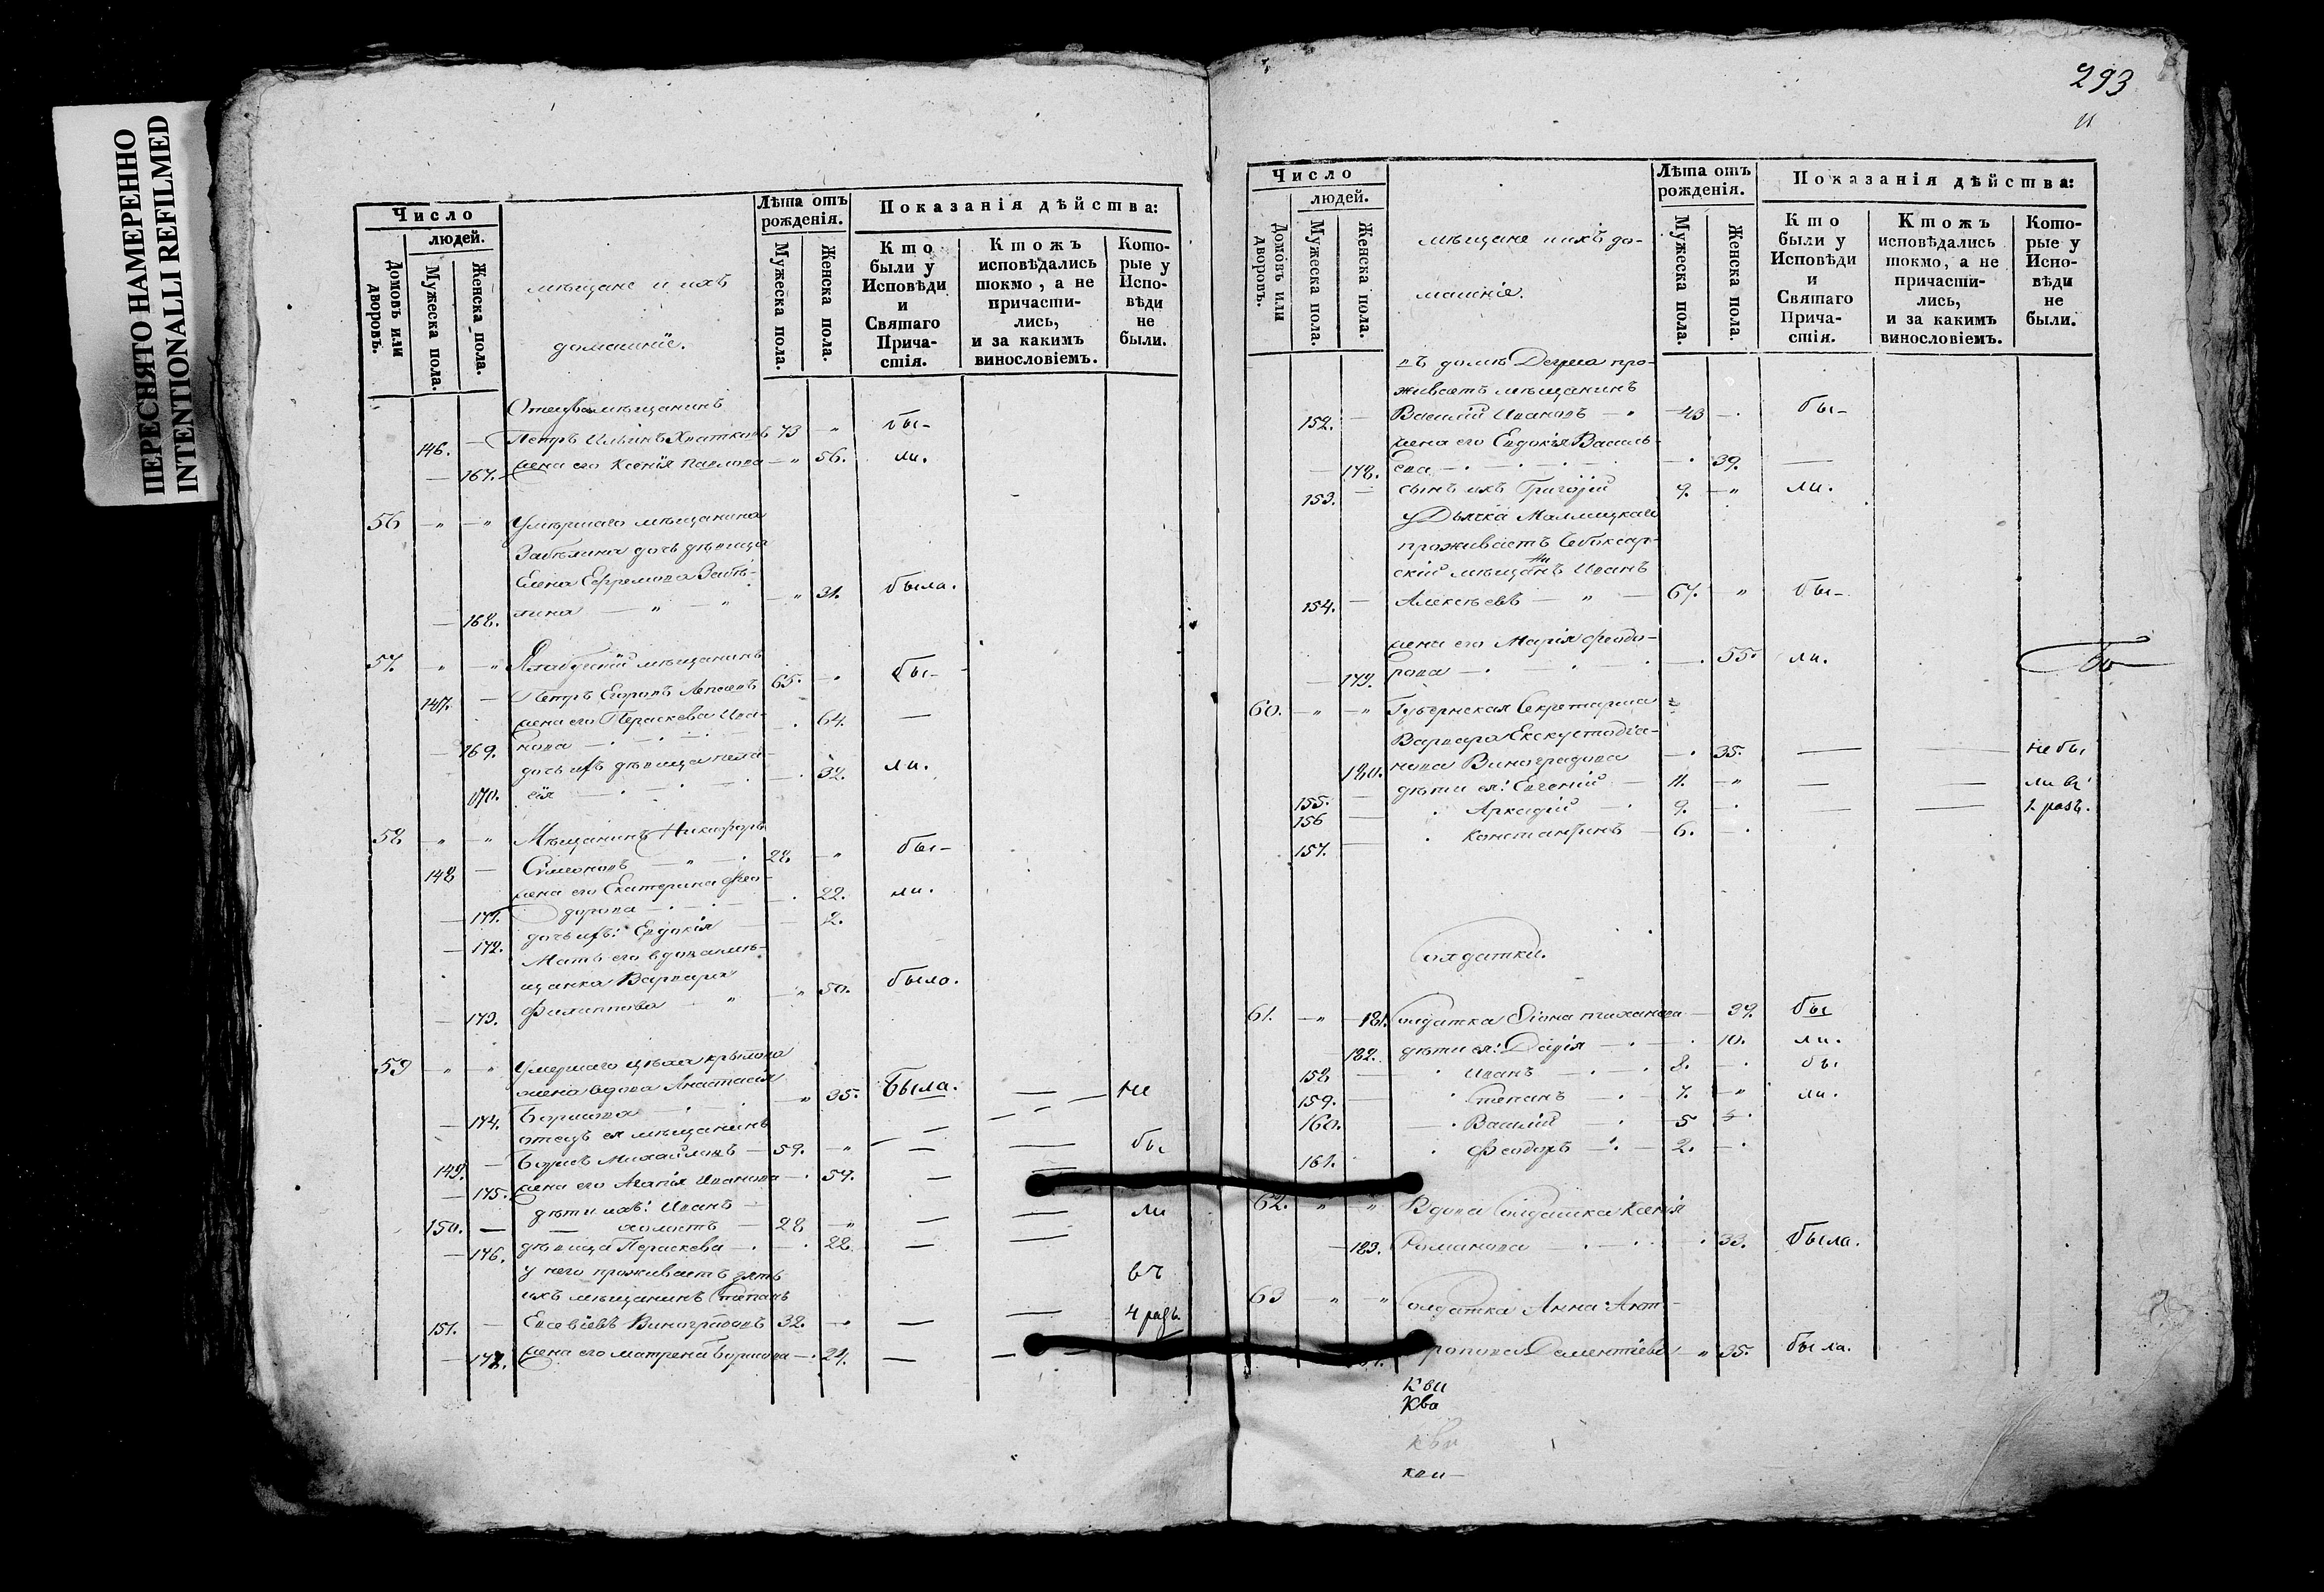 ПЕРЕСНЯТО НАМЕРЕННО
INTENTIONALLI REFILMED
Число
людей.
Домовъ или дворовъ.
Мужеска пола.
Женска пола.
мѣщане и ихъ
домашніе.
Лѣта отъ рожденія.
Мужеска пола.
Женска пола.
Показанія дѣйства:
Кто были у Исповѣди и Святаго Прича-стія.
Ктожъ исповѣдались токмо, а не причасти-лись, и за какимъ винословіемъ.
Кото-рые у Испо-вѣди не были.
мѣщанинъ
146. — Петръ Ильинъ 73 — бы-
— 167. жена его Ксенія Павлова — 56. ли.
56 Умершаго мѣщанина
дочь дѣвица
Елена Ефремова Забѣ-
— 168. лина — 31. была.
57. мѣщанинъ
147. — Петръ Егоровъ 65. — бы-
жена его Параскева Ива- 64. —
— 169. нова
дочь ихъ дѣвица Пела- 32. ли.
170. гія
58 Мѣщанинъ Никифоръ
148 — Симеоновъ 28 — бы-
жена его Екатерина Фео- 22. ли.
— 171. дорова
— 172. дочь ихъ: Евдокія — 2.
Мать его вдова мѣ-
щанка Варвара — 50. была.
— 173. Филиппова
59 Умершаго
жена вдова Анастасія — 35. Была. — не
— 174. Борисова
отецъ ея мѣщанинъ
149. — Борисъ Михайловъ — 59. — бы
— 175. жена его Агапія Иванова — 57.
дѣти ихъ: Иванъ — ли
150. — холостъ — 28
— 176. дѣвица Параскева — 22
у него проживаетъ зять въ
ихъ мѣщанинъ Степанъ
151. — Евсевіевъ Виноградовъ 32. — 4 разъ.
— 177. жена его Матрена Борисова — 24.
293
Число
людей.
Домовъ или дворовъ.
Мужеска пола.
Женска пола.
мѣщане и ихъ до-
машніе.
Лѣта отъ рожденія.
Мужеска пола.
Женска пола.
Показанія дѣйства:
Кто были у Исповѣди и Святаго Прича-стія.
Ктожъ исповѣдались токмо, а не причасти-лись, и за какимъ винословіемъ.
Кото-рые у Испо-вѣди не были.
въ домѣ про-
живаетъ мѣщанинъ
152. — Василій Ивановъ — 43 — бы-
жена его Евдокія Василь-
— 178. ева — 39. —
153. — сынъ ихъ Григорій 9. — ли.
у Дьячка
проживаетъ Чебоксар-
скій мѣщанинъ Иванъ
154. — Алексѣевъ — 67. бы-
жена его Марія Феодо-
— 179. рова — 55. ли.
60. Губернская Секретарша
Варвара
180. нова Виноградова — 35. — не бы
155. — дѣти ея: Евгеній — 11. — ли въ
156 — Аркадій — 9. — 1 разъ.
157. — Константинъ — 6.
Солдатки.
61. 181. Солдатка — 39. бы
182. дѣти ея: Дарія — 10. ли.
158 — Иванъ — 8. бы
159. — Степанъ — 7. ли.
160. — Василій — 5
161. — Феодоръ — 2.
62. Вдова Солдатка Ксенія
— 183. Романова — 33. была.
63 Солдатка Анна
Дементіева — 35. была.
Кви
Ква
Кви